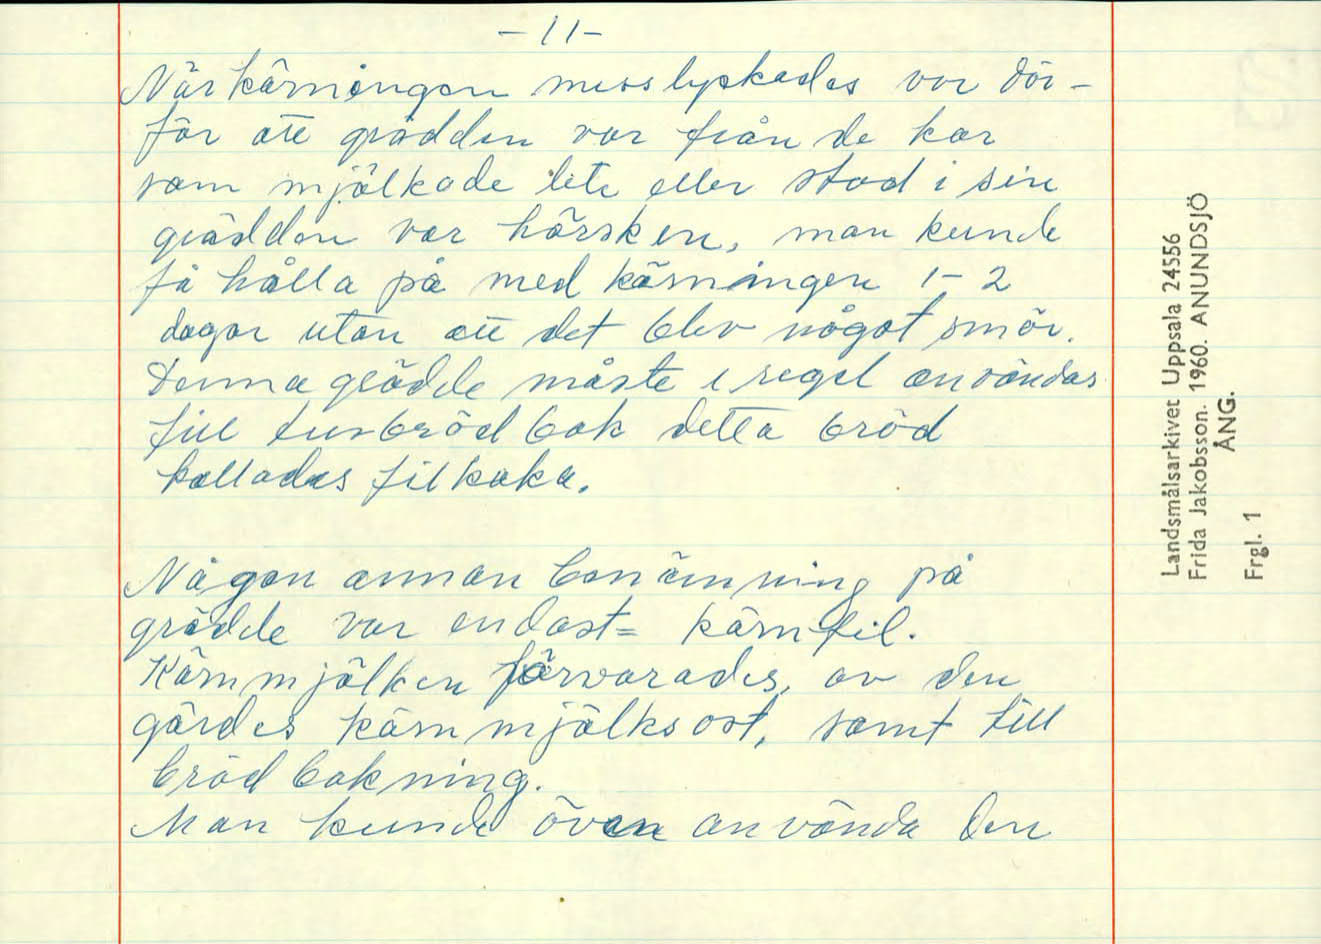 -11-
När kärningen misslyckades var där-
för att grädden var från de kor
som mjölkade lite eller stod i sin
grädden var härsken, man kunde
få hålla på med kärningen 1-2
dagar utan att det blev något smör.
Denna grädde måste i regel användas
till tunbröd bak detta bröd
kallades filkaka.
Någon annan benämning på
grädde var endast= kärnfil.
Kärnmjölken förvarades, av den
gärdes kärnmjölksost, samt till
bröd bakning.
Man kunde även använda den
Landsmålsarkivet Uppsala 24556
Frida Jakobsson. 1960. ANUNDSJÖ
ÅNG.
Frgl. 1